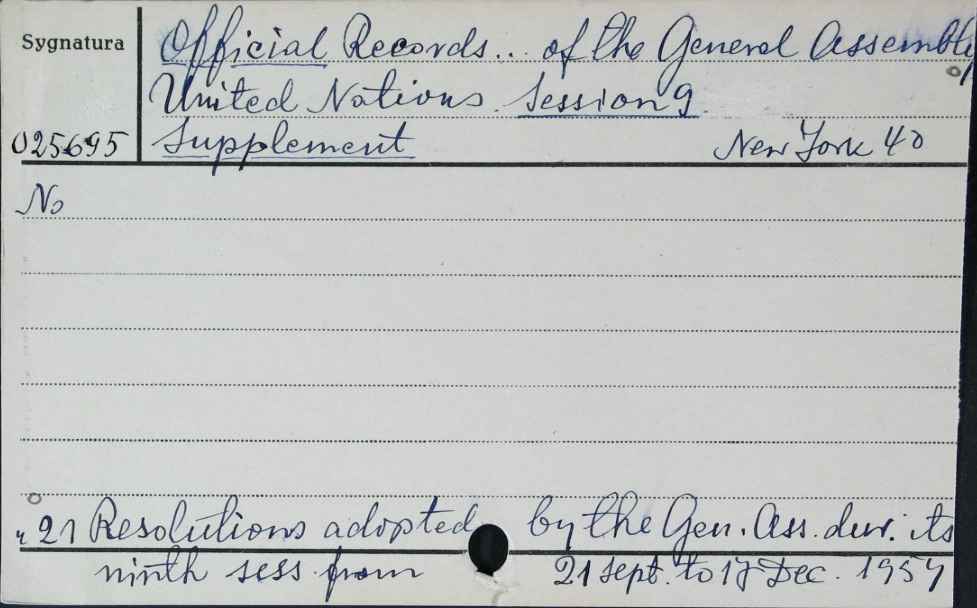 Sygnatura
Official Records... of the General Assembly
of
United Nations Session 9
025695 Supplement New York 4°
No
„ 21 Resolutions adopted by the Gen. Ass. dur. its
ninth sess from 21 sept. to 17 Dec. 1954